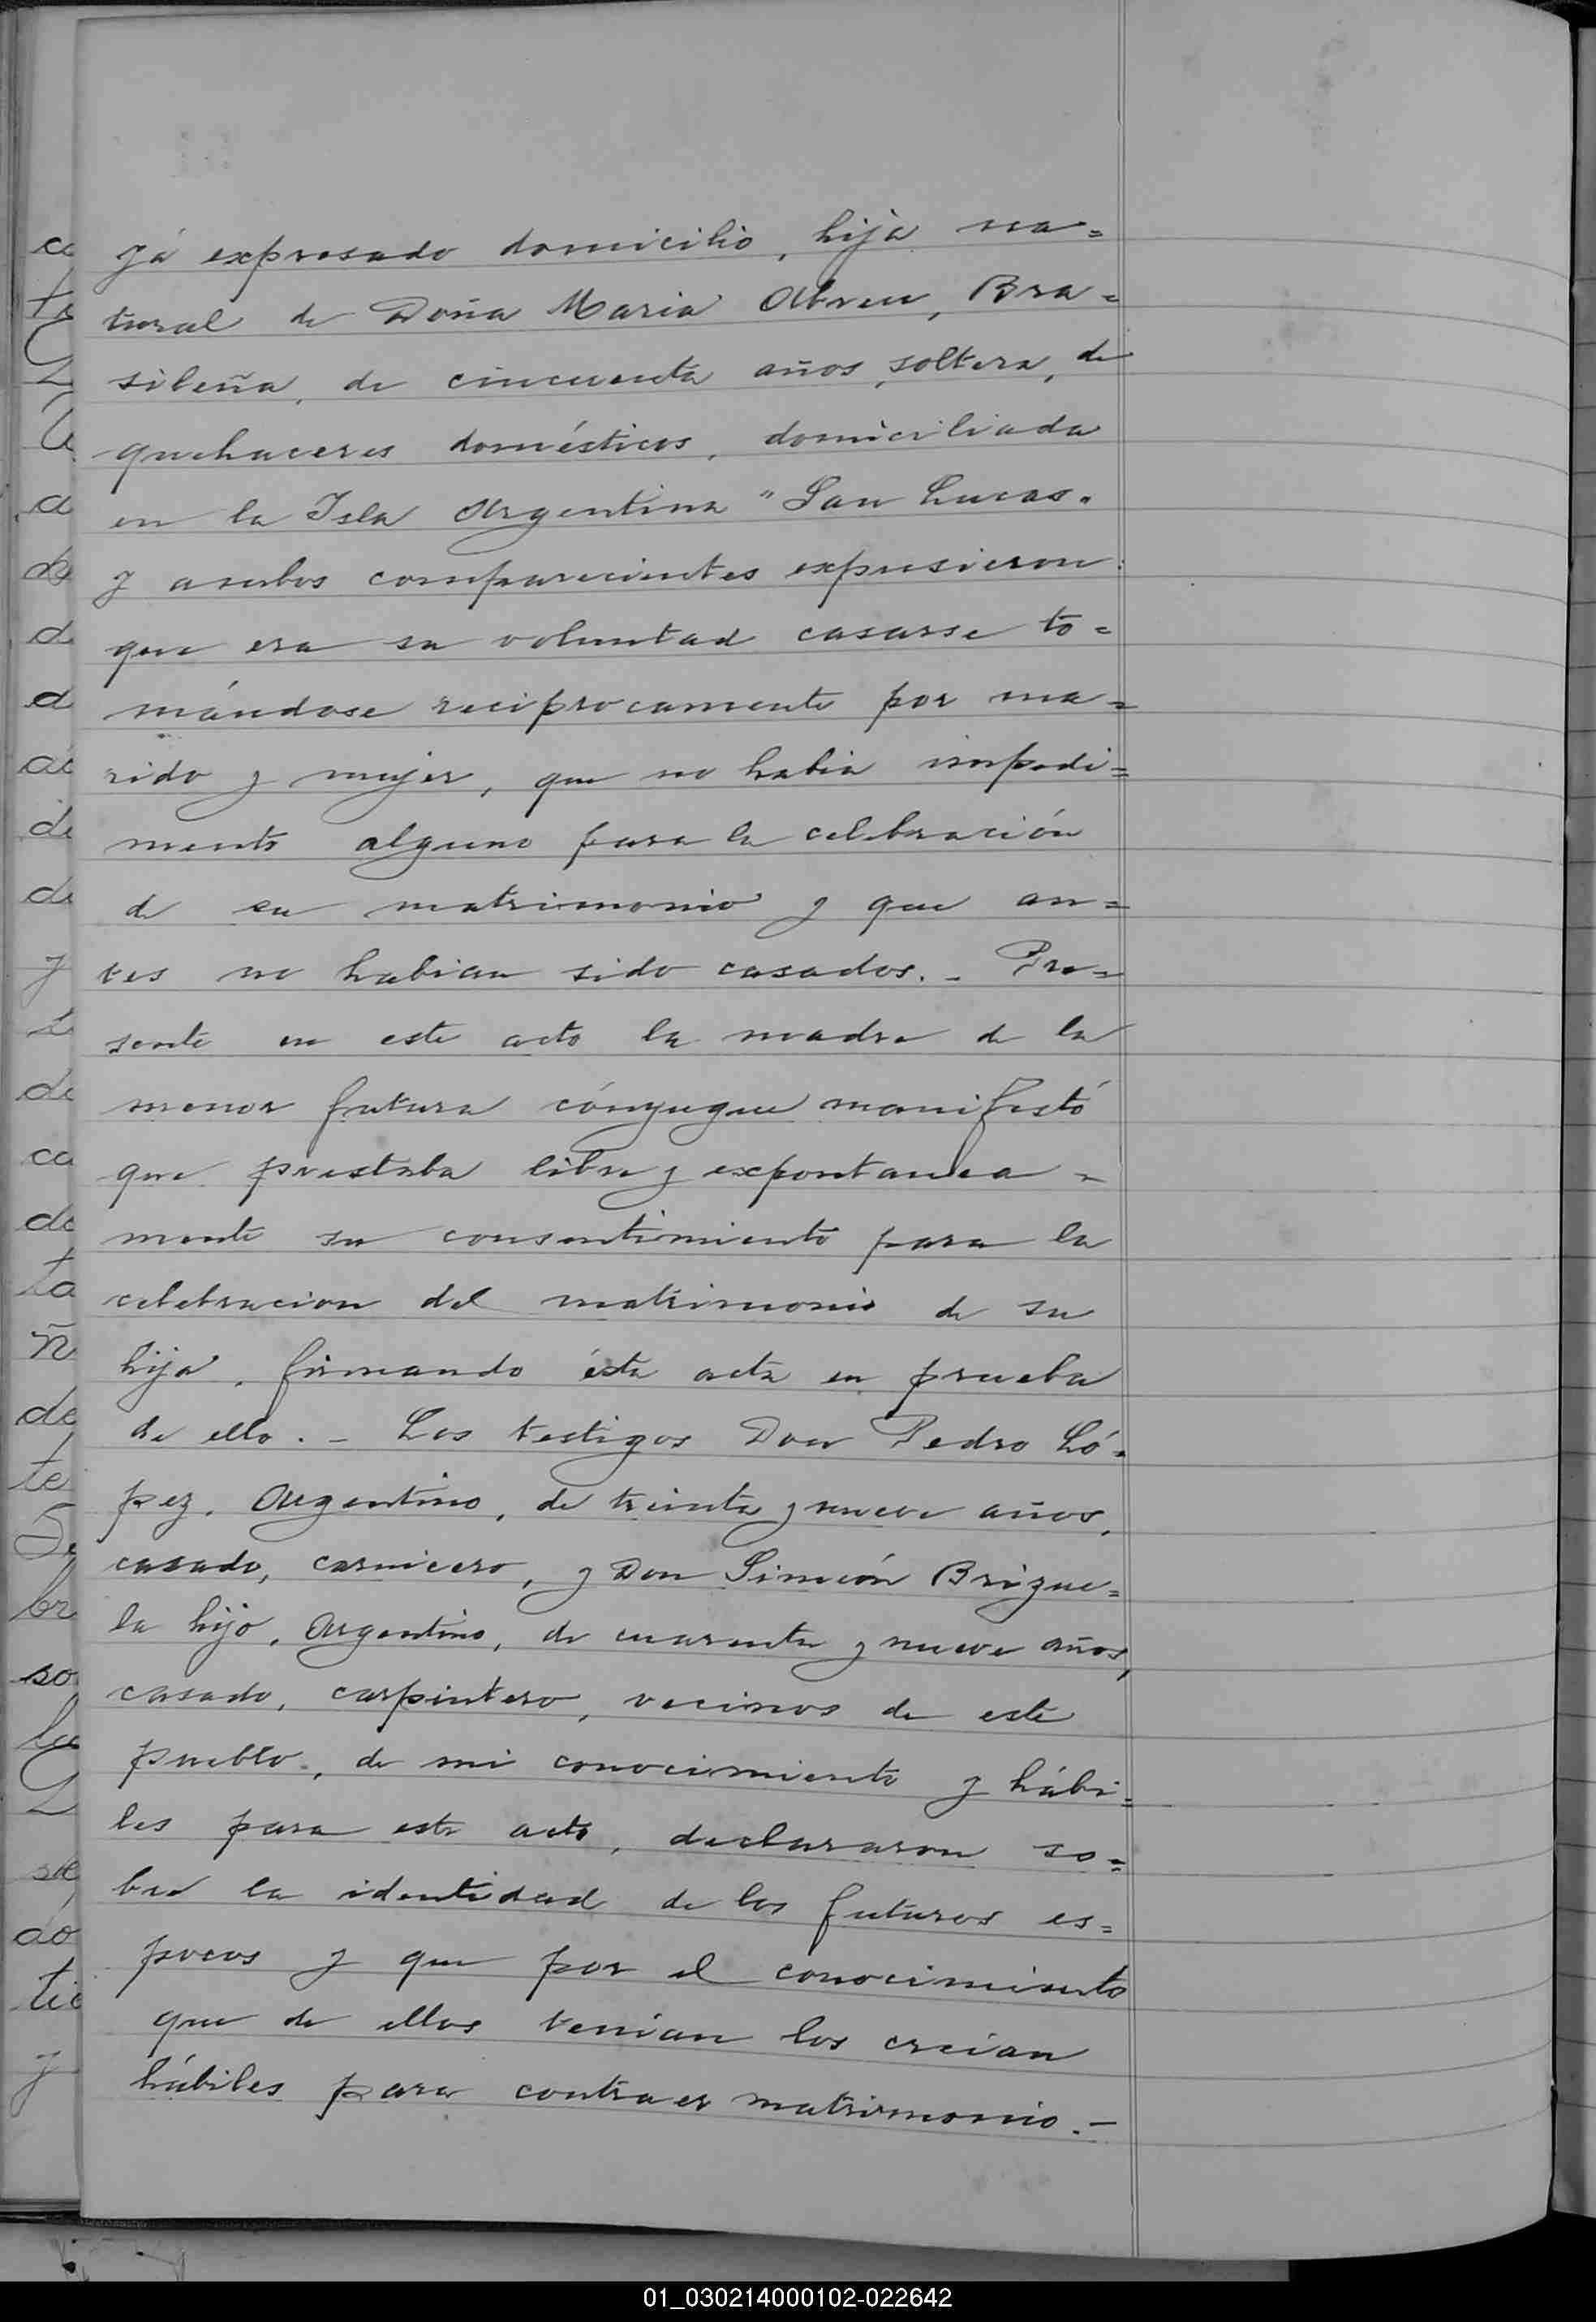 yá expresado domicilio, hija na=
tural de Doña Maria Abreu, Bra=
sileña, de cincuenta años, soltera, de
quehaceres domésticos, domiciliada
en la Isla Argentina "San Lucas.
y ambos comparecientes expusieron:
que era su voluntad casarse to=
mándose reciprocamente por ma=
rido y mujer, que no habia impedi=
mento alguno para la celebración
de su matrimonio y que an=
tes no habian sido casados. - Pre=
sente en este acto la madre de la
menor futura cónyugue manifestó
que prestaba libre y expontanea=
mente su consentimiento para la
celebracion del matrimonio de su
hija, firmando ésta acta en prueba
de ello. - Los testigos Don Pedro Ló=
pez, Argentino, de treinta y nueve años,
casado, carnicero, y Don Simeón Brizue=
la hijo, Argentino, de cuarenta y nueve años,
casado, carpintero, vecinos de este
pueblo, de mi conocimiento y hábi=
les para este acto, declararon so=
bre la identidad de los futuros es=
posos y que por el conocimiento
que de ellos tenian los creian
hábiles para contraer matrimonio. -
01_030214000102-022642